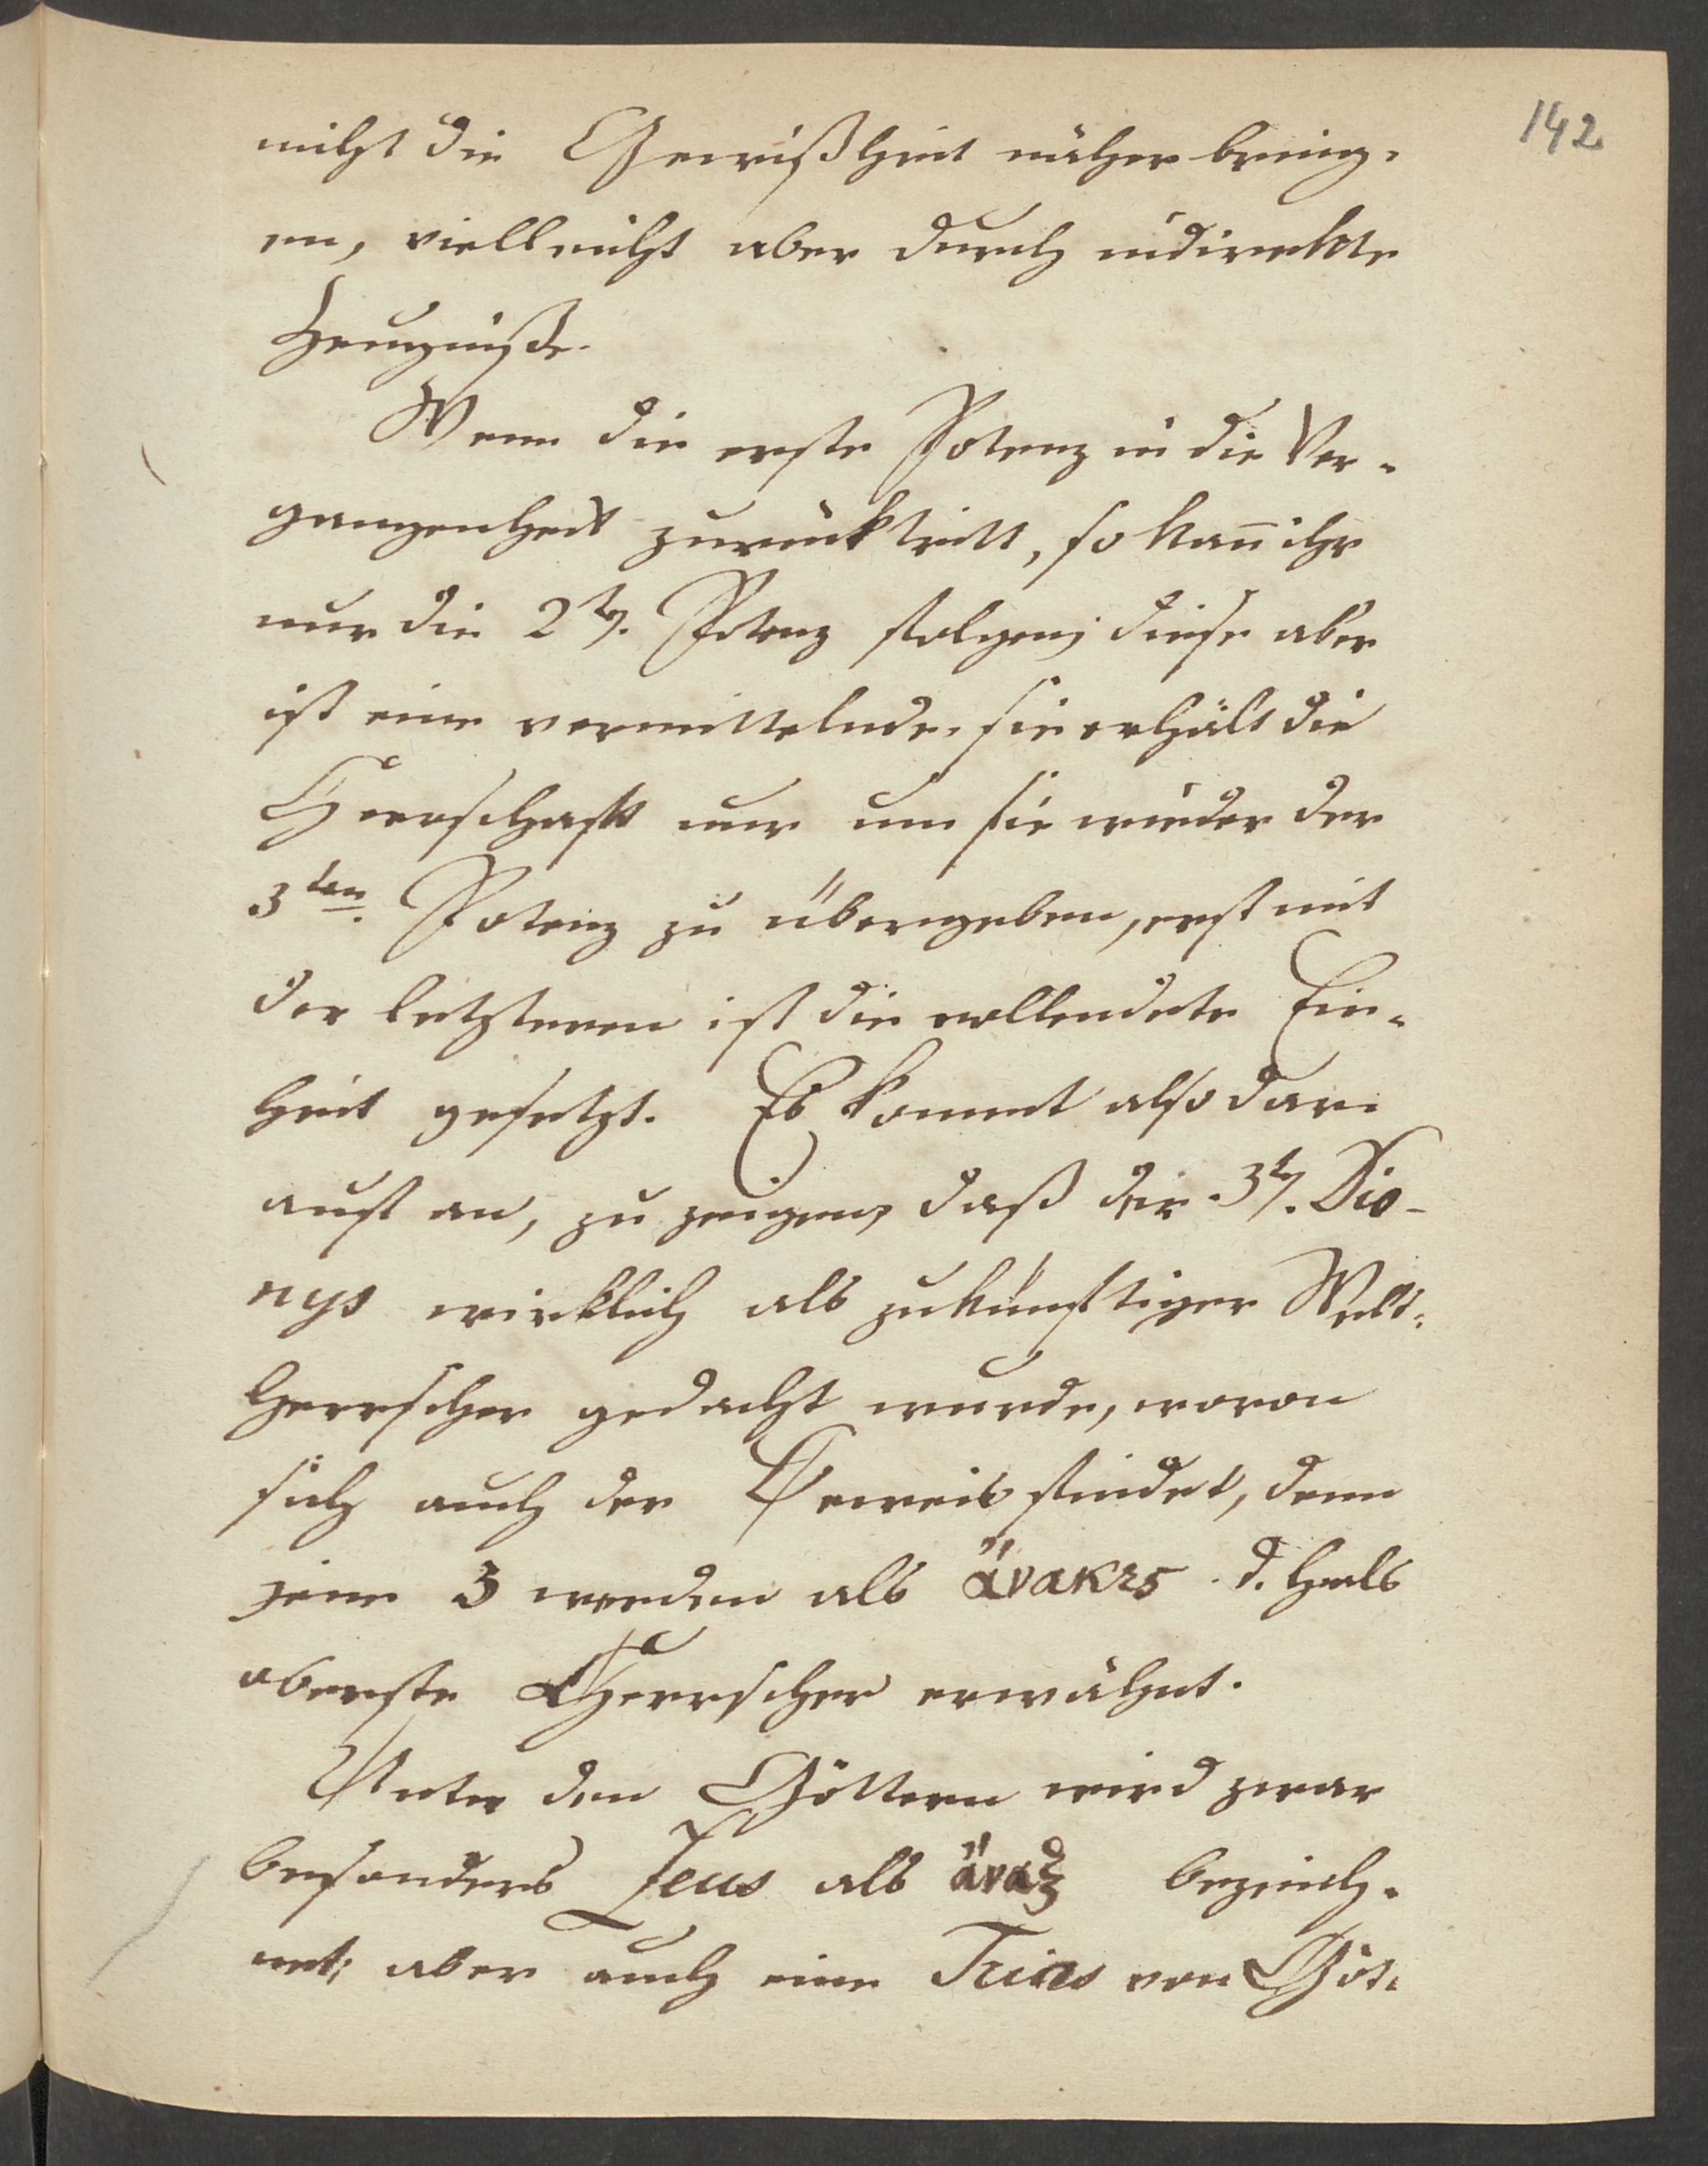 142
nicht die Gewißheit näher bring-
en, vielleicht aber durch indirekte
Zeugniße.
Wenn die erste Potenz in die Ver-
gangenheit zurücktritt, so kan̄ ihr
nur die 2te. Potenz folgen; diese aber
ist eine vermittelnde, sie erhält die
Herrschaft nur um sie wieder der
3ten. Potenz zu übergeben, erst mit
der letzteren ist die vollendete Ein-
heit gesetzt. Es kommt also dar-
auf an, zu zeigen, daß der 3te. Dio-
nys wirklich als zukünftiger Welt-
herrscher gedacht wurde, wovon
sich auch der Beweis findet, denn
jene 3 werden als ἄνακες d. h. als
oberste Herrscher erwähnt.
Unter den Göttern wird zwar
besonders Zeus als ἄναξ bezeich-
net; aber auch eine Trias von Göt-